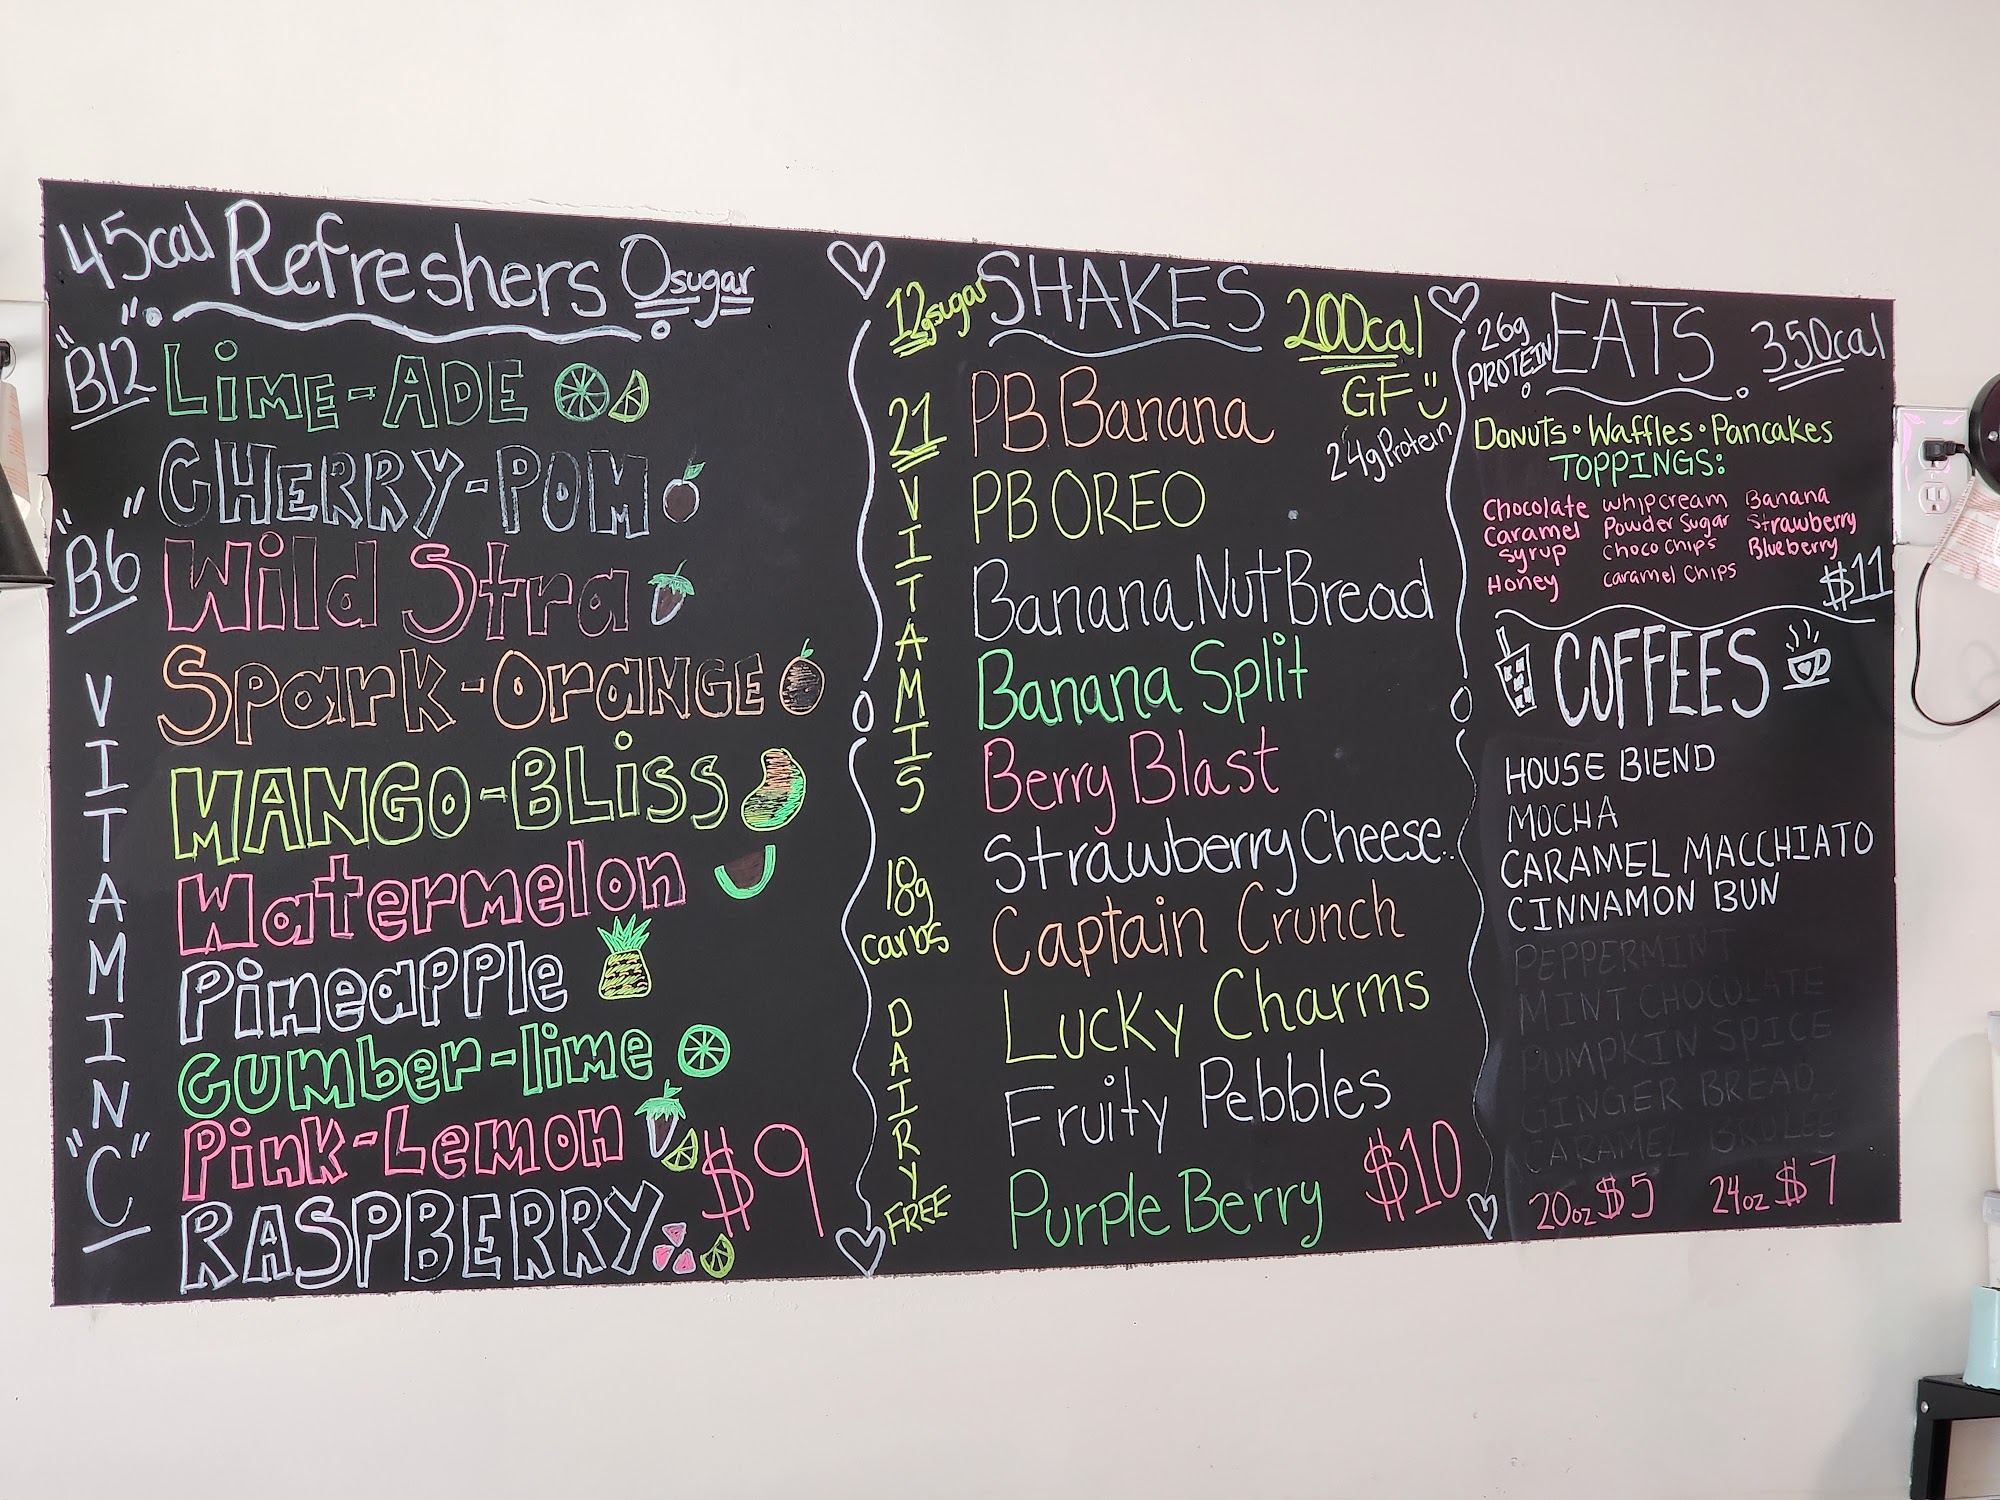 45cal Refreshers 0sugar
"B12"
"B6"
VITAMIN
"C"
LIME-ADE
CHERRY-POM
Wild Stra
Spark-OraNGE
MANGO-BLiSS
Watermelon
Pineapple
Cumber-lime
Pink-Lemon
RASPBERRY
$9
12g sugar SHAKES 200cal
GF
24g Protein
21
VITAMIS
18g
carbs
DAIRY
FREE
PB Banana
PB OREO
Banana Nut Bread
Banana Split
Berry Blast
Strawberry Cheese..
Captain Crunch
Lucky Charms
Fruity Pebbles
Purple Berry
$10
26g
PROTEIN
EATS 350cal
DONUTS • Waffles • Pancakes
TOPPINGS:
Chocolate whipcream Banana
Caramel Powder Sugar Strawberry
syrup Choco Chips Blueberry
Honey caramel Chips
$11
COFFEES
HOUSE BLEND
MOCHA
CARAMEL MACCHIATO
CINNAMON BUN
PEPPERMINT
MINT CHOCOLATE
PUMPKIN SPICE
GINGER BREAD
CARAMEL BRULEE
20oz $5 24oz $7